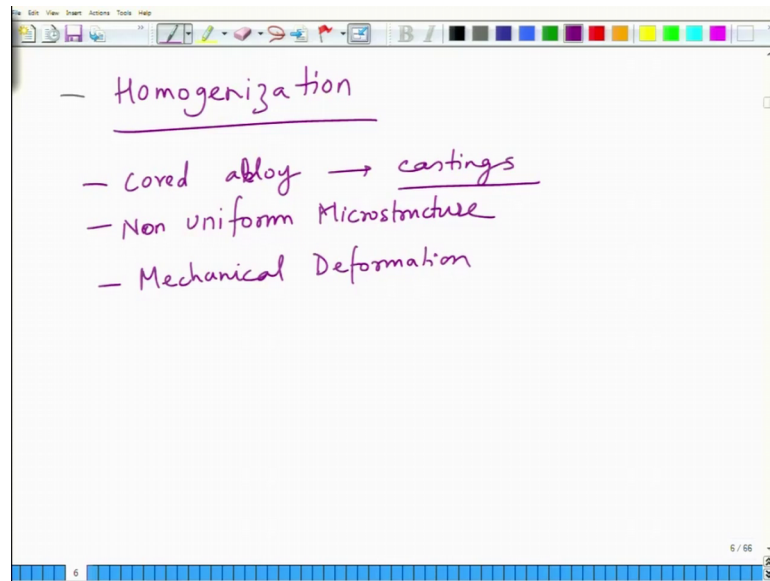 File Edit View Insert Actions Tools Help
B I
– Homogenization
– Cored alloy → castings
– Non uniform Microstructure
– Mechanical Deformation
6 / 66
6